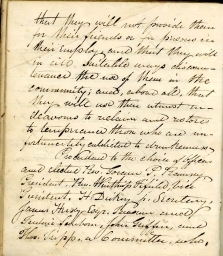 that they will not provide them
for their friends or for persons in
their employ, and that they will
in all suitable ways discoun-
tenance the use of them in the
community; and, above all, that
they will use their utmost en-
deavours to reclaim and restore
to temperance those who are un-
fortunately addicted to drunkenness.
Proceeded to the choice of officers
and elected Rev. Joseph
President, Rev. Winthrop Fifield, Vice
President, Secretary,
James Treasurer and
John
Thos. a Committee, who,